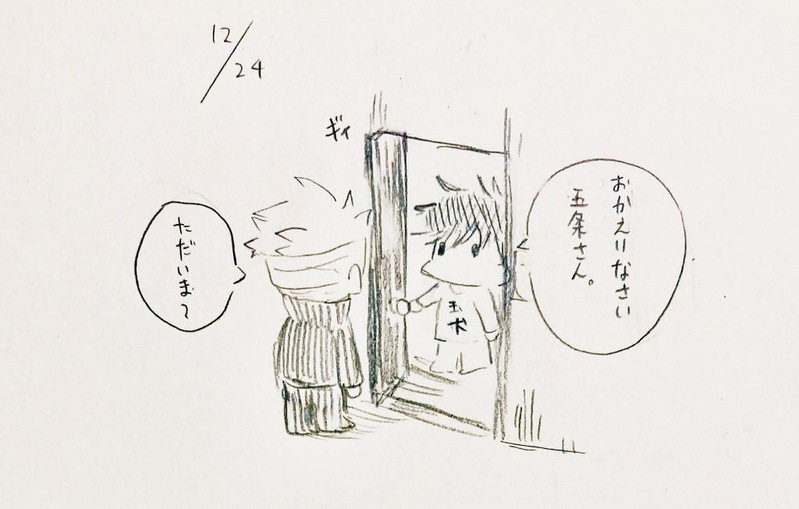 12/24
ギィ
おかえりなさい
五条さん。
ただいまー
玉犬